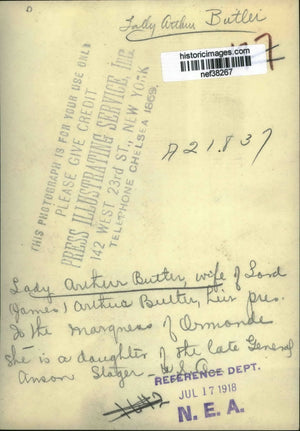 Lady Arthur Butler
historicimages.com
nef38267
THIS PHOTOGRAPH IS FOR YOUR USE ONLY
PLEASE GIVE CREDIT
PRESS ILLUSTRATING SERVICE, INC
142 WEST 23rd ST., NEW YORK
TELEPHONE CHELSEA 1869
A21.837
Lady Arthur Butler, wife of Lord
(James) Arthur Butler, heir pres.
to the Marquess of Ormonde
She is a daughter of the late General
Anson Stager - U.S.A.
REFERENCE DEPT.
JUL 17 1918
N. E. A.